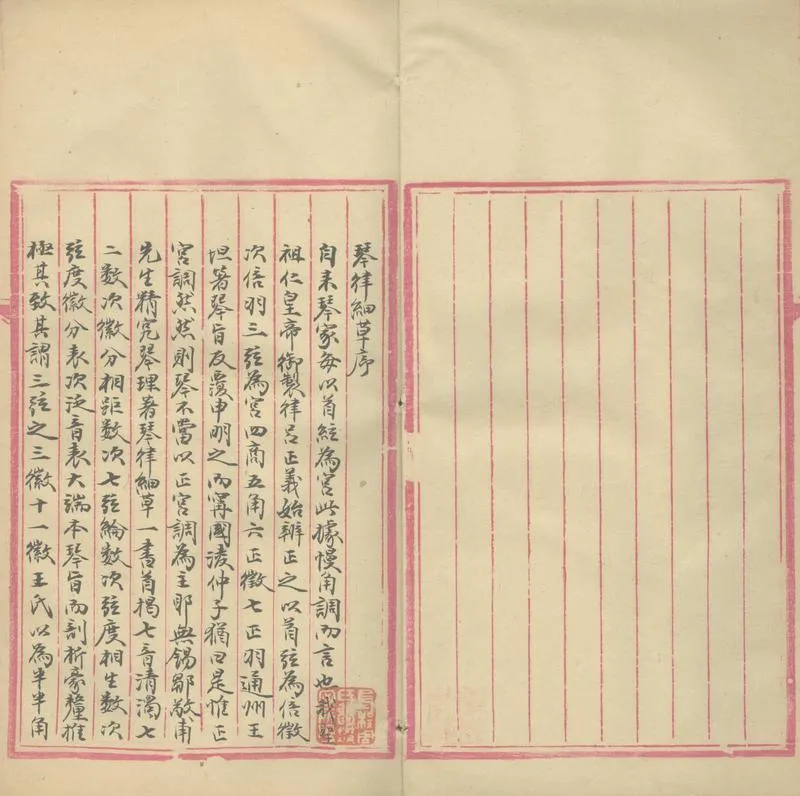 琴律細草序
自来琴家每以首絃為宮此據慢角調而言也我聖
祖仁皇帝御製律呂正義始辨正之以首弦為倍徵
次倍羽三弦為宮四商五角六正徵七正羽通州王
坦著琴旨反覆申明之而寗國淩仲子猶曰是惟正
宮調然然則琴不當以正宮調為主耶無錫鄒敬甫
先生精究琴理著琴律細草一書首揭七音清濁七
二數次徽分相距數次七弦綸數次弦度相生數次
弦度徽分表次泛音表大端本琴旨而剖析豪釐推
極其致其謂三弦之三徽十一徽王氏以為半半角